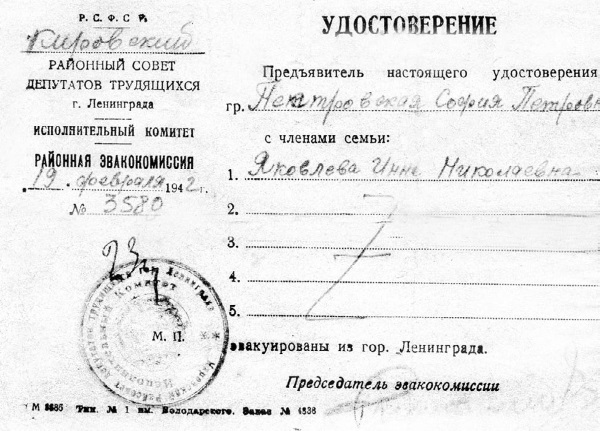 Р. С. Ф. С. Р.
Кировский
РАЙОННЫЙ СОВЕТ
ДЕПУТАТОВ ТРУДЯЩИХСЯ
г. Ленинграда
ИСПОЛНИТЕЛЬНЫЙ КОМИТЕТ
РАЙОННАЯ ЭВАКОКОМИССИЯ
"19" февраля 1942 г.
№ 3580
23/
М. П.
УДОСТОВЕРЕНИЕ
Предъявитель настоящего удостоверения
гр. Петровская София Петровн
с членами семьи:
1. Яковлева Инна Николаевна
2.
3.
4.
5.
эвакуированы из гор. Ленинграда.
Председатель эвакокомиссии
Исполнительный Комитет
М 3685 Тип. № 1 им. Володарского. Заказ № 4838